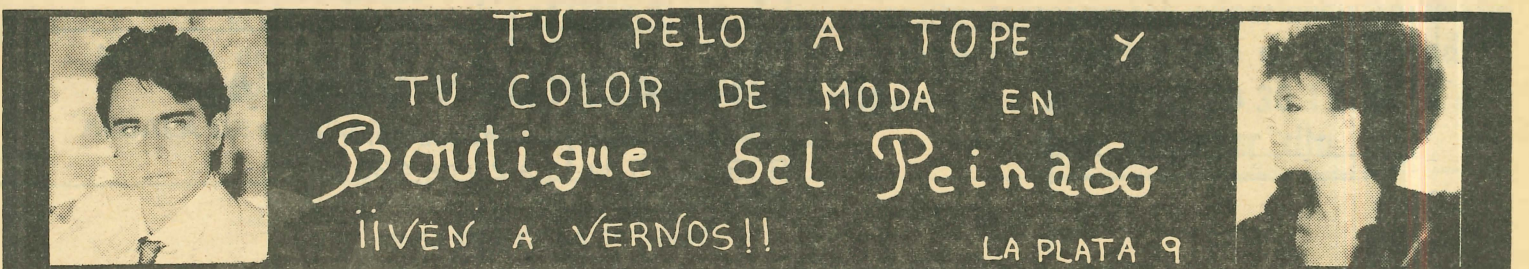 TU PELO A TOPE Y
TU COLOR DE MODA EN
Boutique del Peinado
¡¡VEN A VERNOS!!
LA PLATA 9